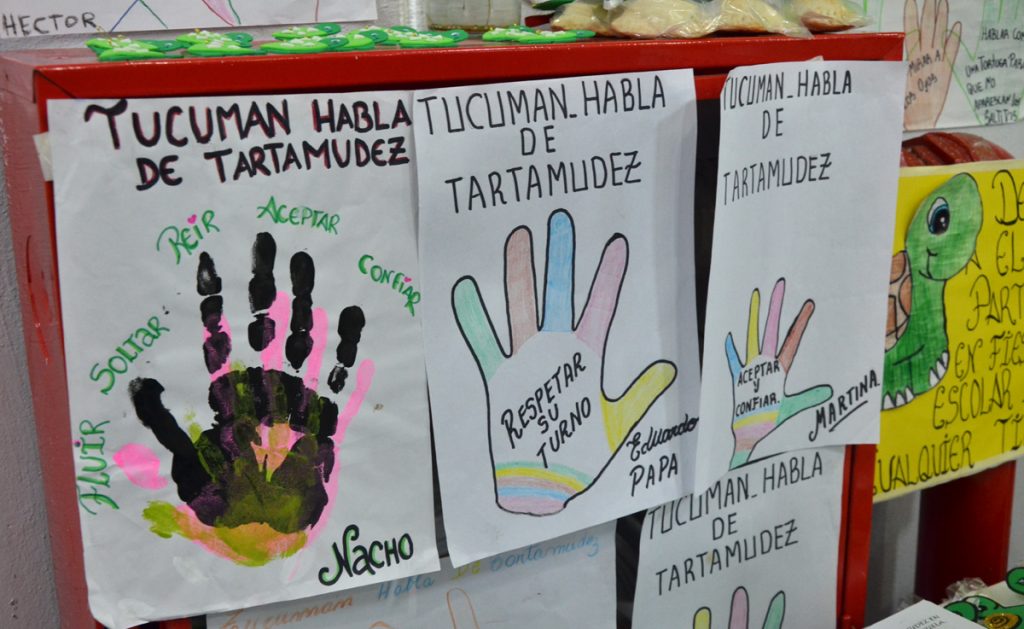 HECTOR
TUCUMAN HABLA
DE TARTAMUDEZ
REIR
ACEPTAR
CONFIAR
SOLTAR
FLUIR
NACHO
TUCUMAN_HABLA
DE
TARTAMUDEZ
RESPETAR
SU
TURNO
Eduardo
PAPA
TUCUMAN_HABLA
DE
TARTAMUDEZ
ACEPTAR
Y
CONFIAR.
MARTINA
MIRAR A
LOS
OJOS
HABLAR COM
UNA TORTUGA PARA
QUE NO
APAREZCAN LOS
SALTITOS
DE
EL
PARTI
EN FIES
ESCOLAR
UALQUIER TI
Tucuman Habla De tartamudez
TUCUMAN_HABLA
DE
TARTAMUDEZ